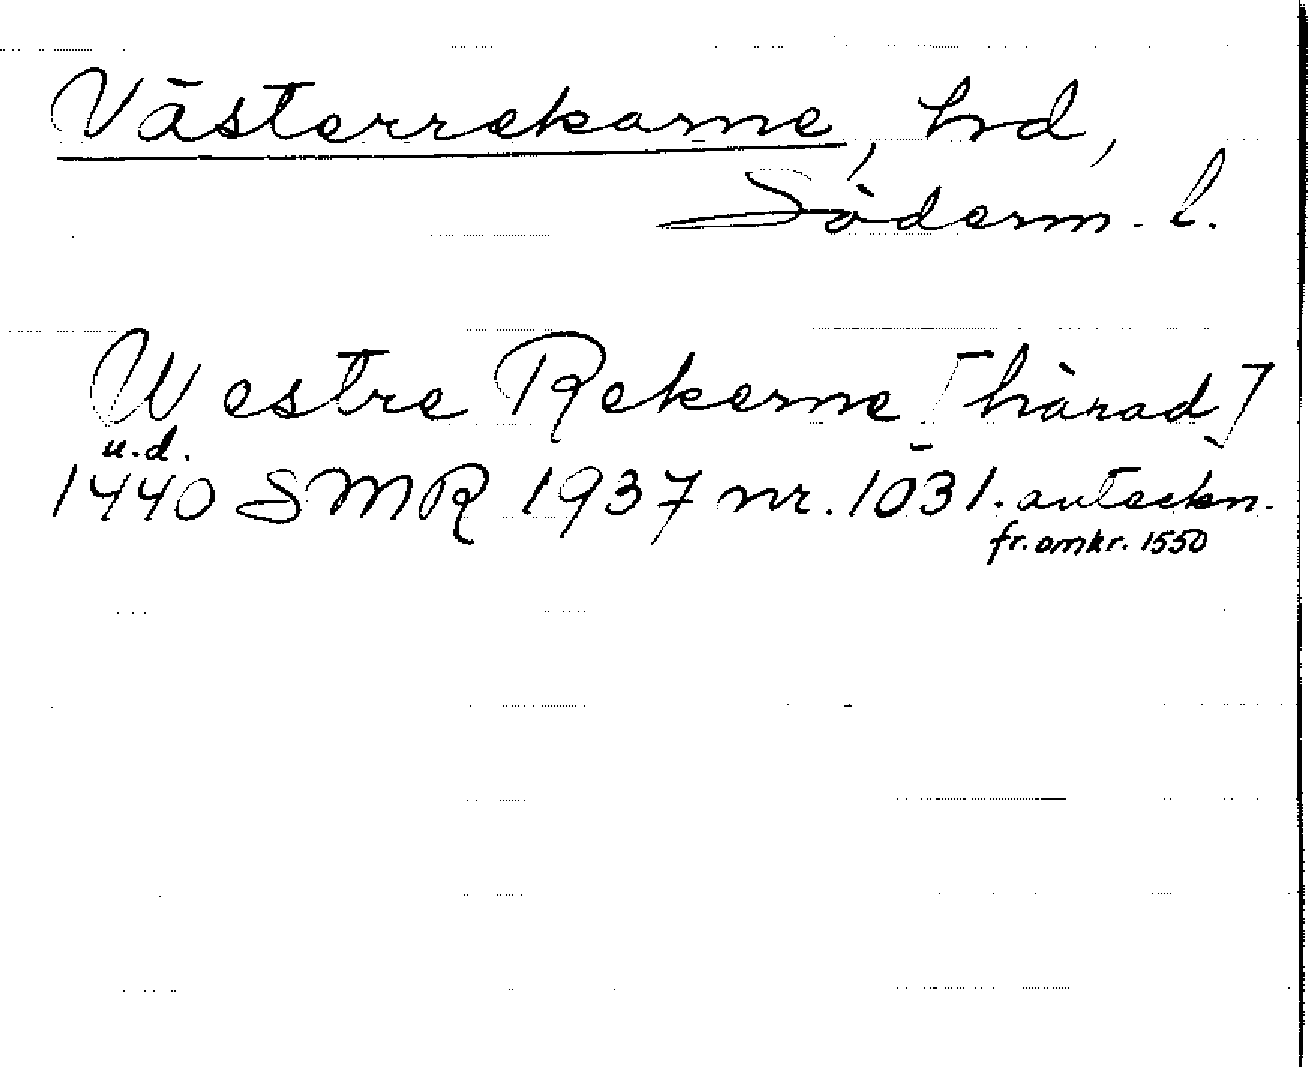 Västerrekarne, hrd,
Söderm. l.
Westre Rekerne [härad]
u.d.
1440 SMR 1937 nr. 1031. anteckn.
fr. omkr. 1550